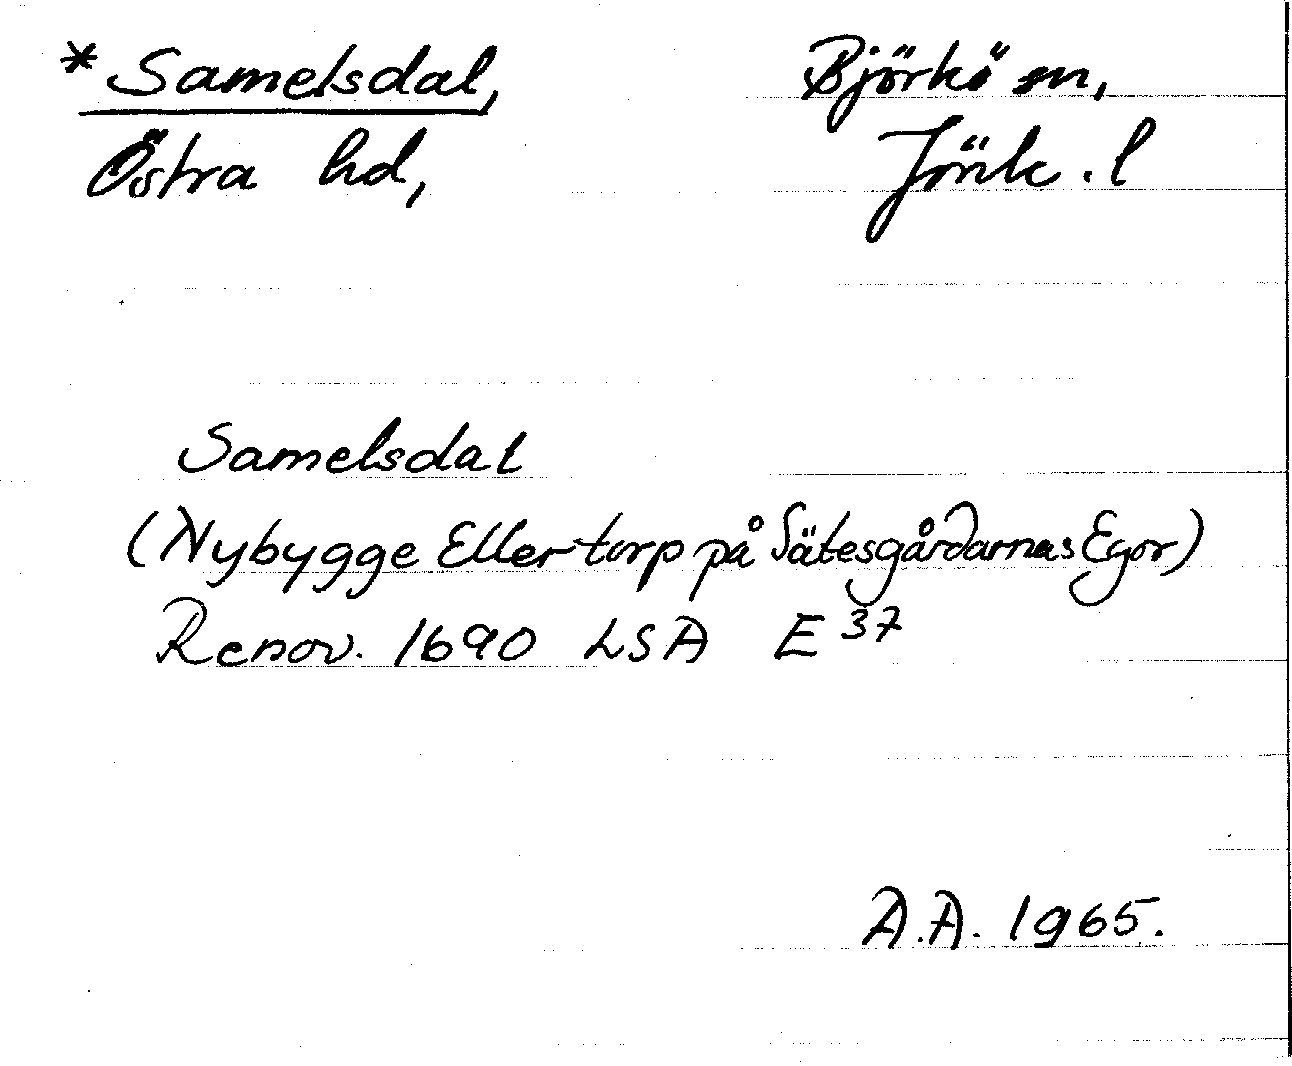 *Samelsdal, Björkö sn,
Östra hd, Jönk. l
Samelsdal
(Nybygge Eller torp på Sätesgårdarnas Egor)
Renov. 1690 LSA E 37
A.A. 1965.